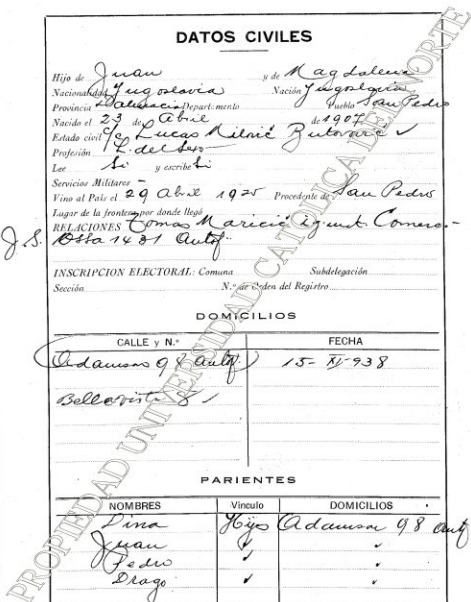 DATOS CIVILES
Hijo de Juan y de Magdalena
Nacionalidad Yugoslavia Nación Yugoslavia
Provincia Dalmacia Departamento Pueblo San Pedro
Nacido el 23 de Abril de 1907
Estado civil c/c Lucas Milovic Butovovic
Profesión L. del Sexo
Lee Si y escribe Si
Servicios Militares -
Vino al País el 29 Abril 1925 Procedente de San Pedro
Lugar de la frontera por donde llegó
RELACIONES Tomas Maricic Comerc-
J. S. Ossa 1431 Autof.
INSCRIPCION ELECTORAL: Comuna Subdelegación
Sección N.º de Orden del Registro
DOMICILIOS
CALLE y N.º FECHA
Adamson 98 autof. 15-XI-938
Bellavista 8
PARIENTES
NOMBRES Vínculo DOMICILIOS
Dina Hijo Adamson 98 autf
Juan ✓ ✓
Pedro ✓ ✓
Drago ✓ ✓
PROPIEDAD UNIVERSIDAD CATOLICA DEL NORTE